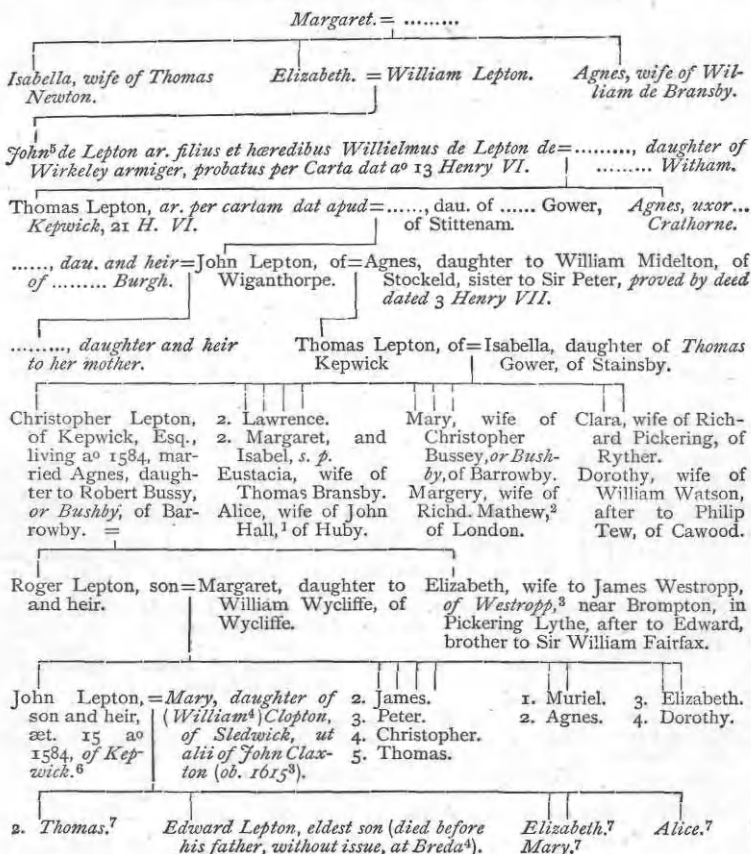 Margaret. = .........
Isabella, wife of Thomas Newton.
Elizabeth. = William Lepton.
Agnes, wife of Wil-
liam de Bransby.
John⁵ de Lepton ar. filius et hæredibus Willielmus de Lepton de = ........., daughter of
Wirkeley armiger, probatus per Carta dat aº 13 Henry VI.
......... Witham.
Thomas Lepton, ar. per cartam dat apud
Kepwick, 21 H. VI.
= ......, dau. of ...... Gower,
of Stittenam.
Agnes, uxor...
Crathorne.
......, dau. and heir
of ......... Burgh.
= John Lepton, of
Wiganthorpe.
= Agnes, daughter to William Midelton, of
Stockeld, sister to Sir Peter, proved by deed
dated 3 Henry VII.
........., daughter and heir
to her mother.
Thomas Lepton, of
Kepwick
= Isabella, daughter of Thomas
Gower, of Stainsby.
Christopher Lepton,
of Kepwick, Esq.,
living aº 1584, mar-
ried Agnes, daugh-
ter to Robert Bussy,
or Bushby, of Bar-
rowby. =
2. Lawrence.
2. Margaret, and
Isabel, s. p.
Eustacia, wife of
Thomas Bransby.
Alice, wife of John
Hall,¹ of Huby.
Mary, wife of
Christopher
Bussey, or Bush-
by, of Barrowby.
Margery, wife of
Richd. Mathew,²
of London.
Clara, wife of Rich-
ard Pickering, of
Ryther.
Dorothy, wife of
William Watson,
after to Philip
Tew, of Cawood.
Roger Lepton, son
and heir.
= Margaret, daughter to
William Wycliffe, of
Wycliffe.
Elizabeth, wife to James Westropp,
of Westropp,³ near Brompton, in
Pickering Lythe, after to Edward,
brother to Sir William Fairfax.
John Lepton,
son and heir,
æt. 15 aº
1584, of Kep-
wick.⁶
= Mary, daughter of
(William⁴) Clopton,
of Sledwick, ut
alii of John Clax-
ton (ob. 1615³).
2. James.
3. Peter.
4. Christopher.
5. Thomas.
1. Muriel.
2. Agnes.
3. Elizabeth.
4. Dorothy.
2. Thomas.⁷
Edward Lepton, eldest son (died before
his father, without issue, at Breda⁴).
Elizabeth.⁷
Mary.⁷
Alice.⁷